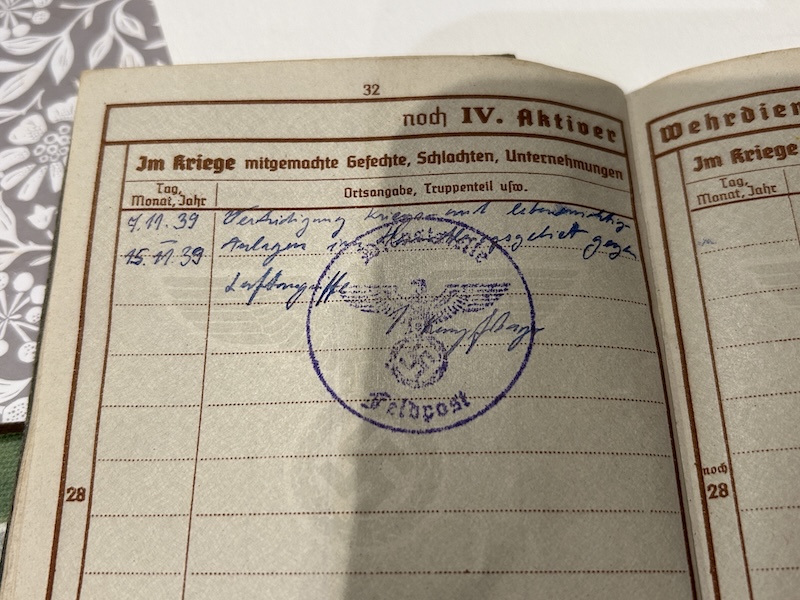 32
noch IV. Aktiver
Im Kriege mitgemachte Gefechte, Schlachten, Unternehmungen
Tag, Monat, Jahr
Ortsangabe, Truppenteil usw.
9.11.39 Verteidigung kriegs- und lebenswichtig
15.11.39 Anlagen im gegen
Luftangriffe
Dienststelle
Feldpost
28
Wehrdien
Im Kriege
Tag, Monat, Jahr
noch
28